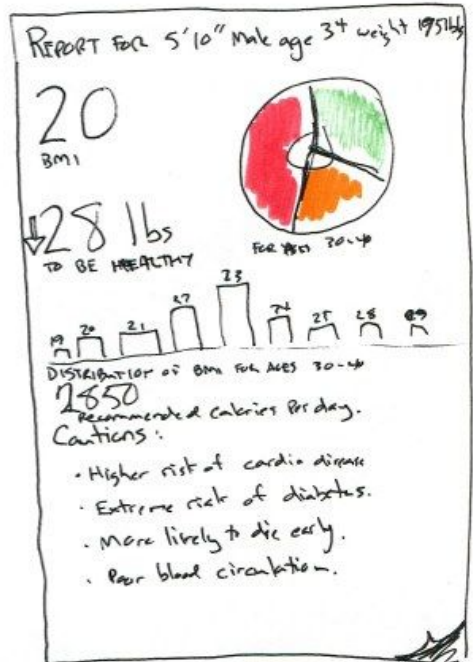 REPORT FOR 5'10" Male age 34 weight 195lbs
20
BMI
↓28 lbs
TO BE HEALTHY
FOR 30-40
19 20 21 27 23 24 25 28 29
DISTRIBUTION OF BMI FOR AGES 30-40
2850
Recommended calories Per day.
Cautions:
· Higher risk of cardio disease
· Extreme risk of diabetes.
· More likely to die early.
· Poor blood circulation.